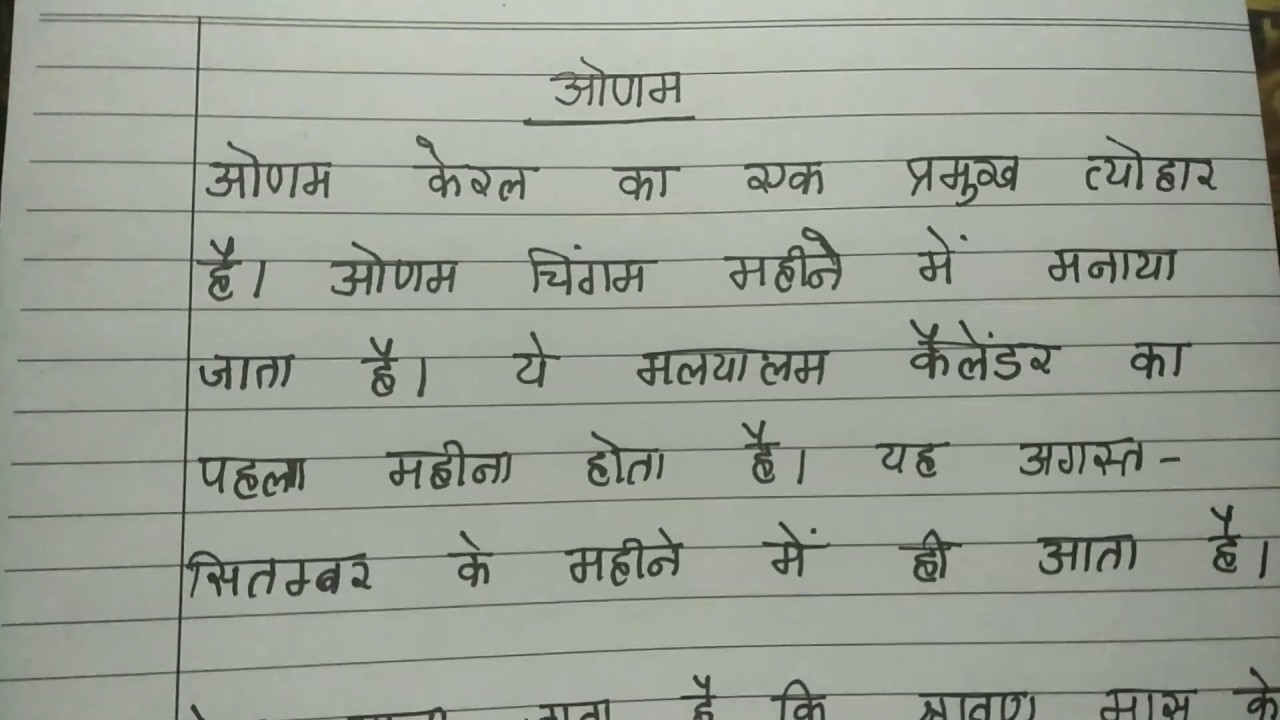 ओणम
ओणम केरल का एक प्रमुख त्योहार
है। ओणम चिंगम महीने में मनाया
जाता है। ये मलयालम कैलेंडर का
पहला महीना होता है। यह अगस्त-
सितम्बर के महीने में ही आता है।
है कि श्रावण मास के